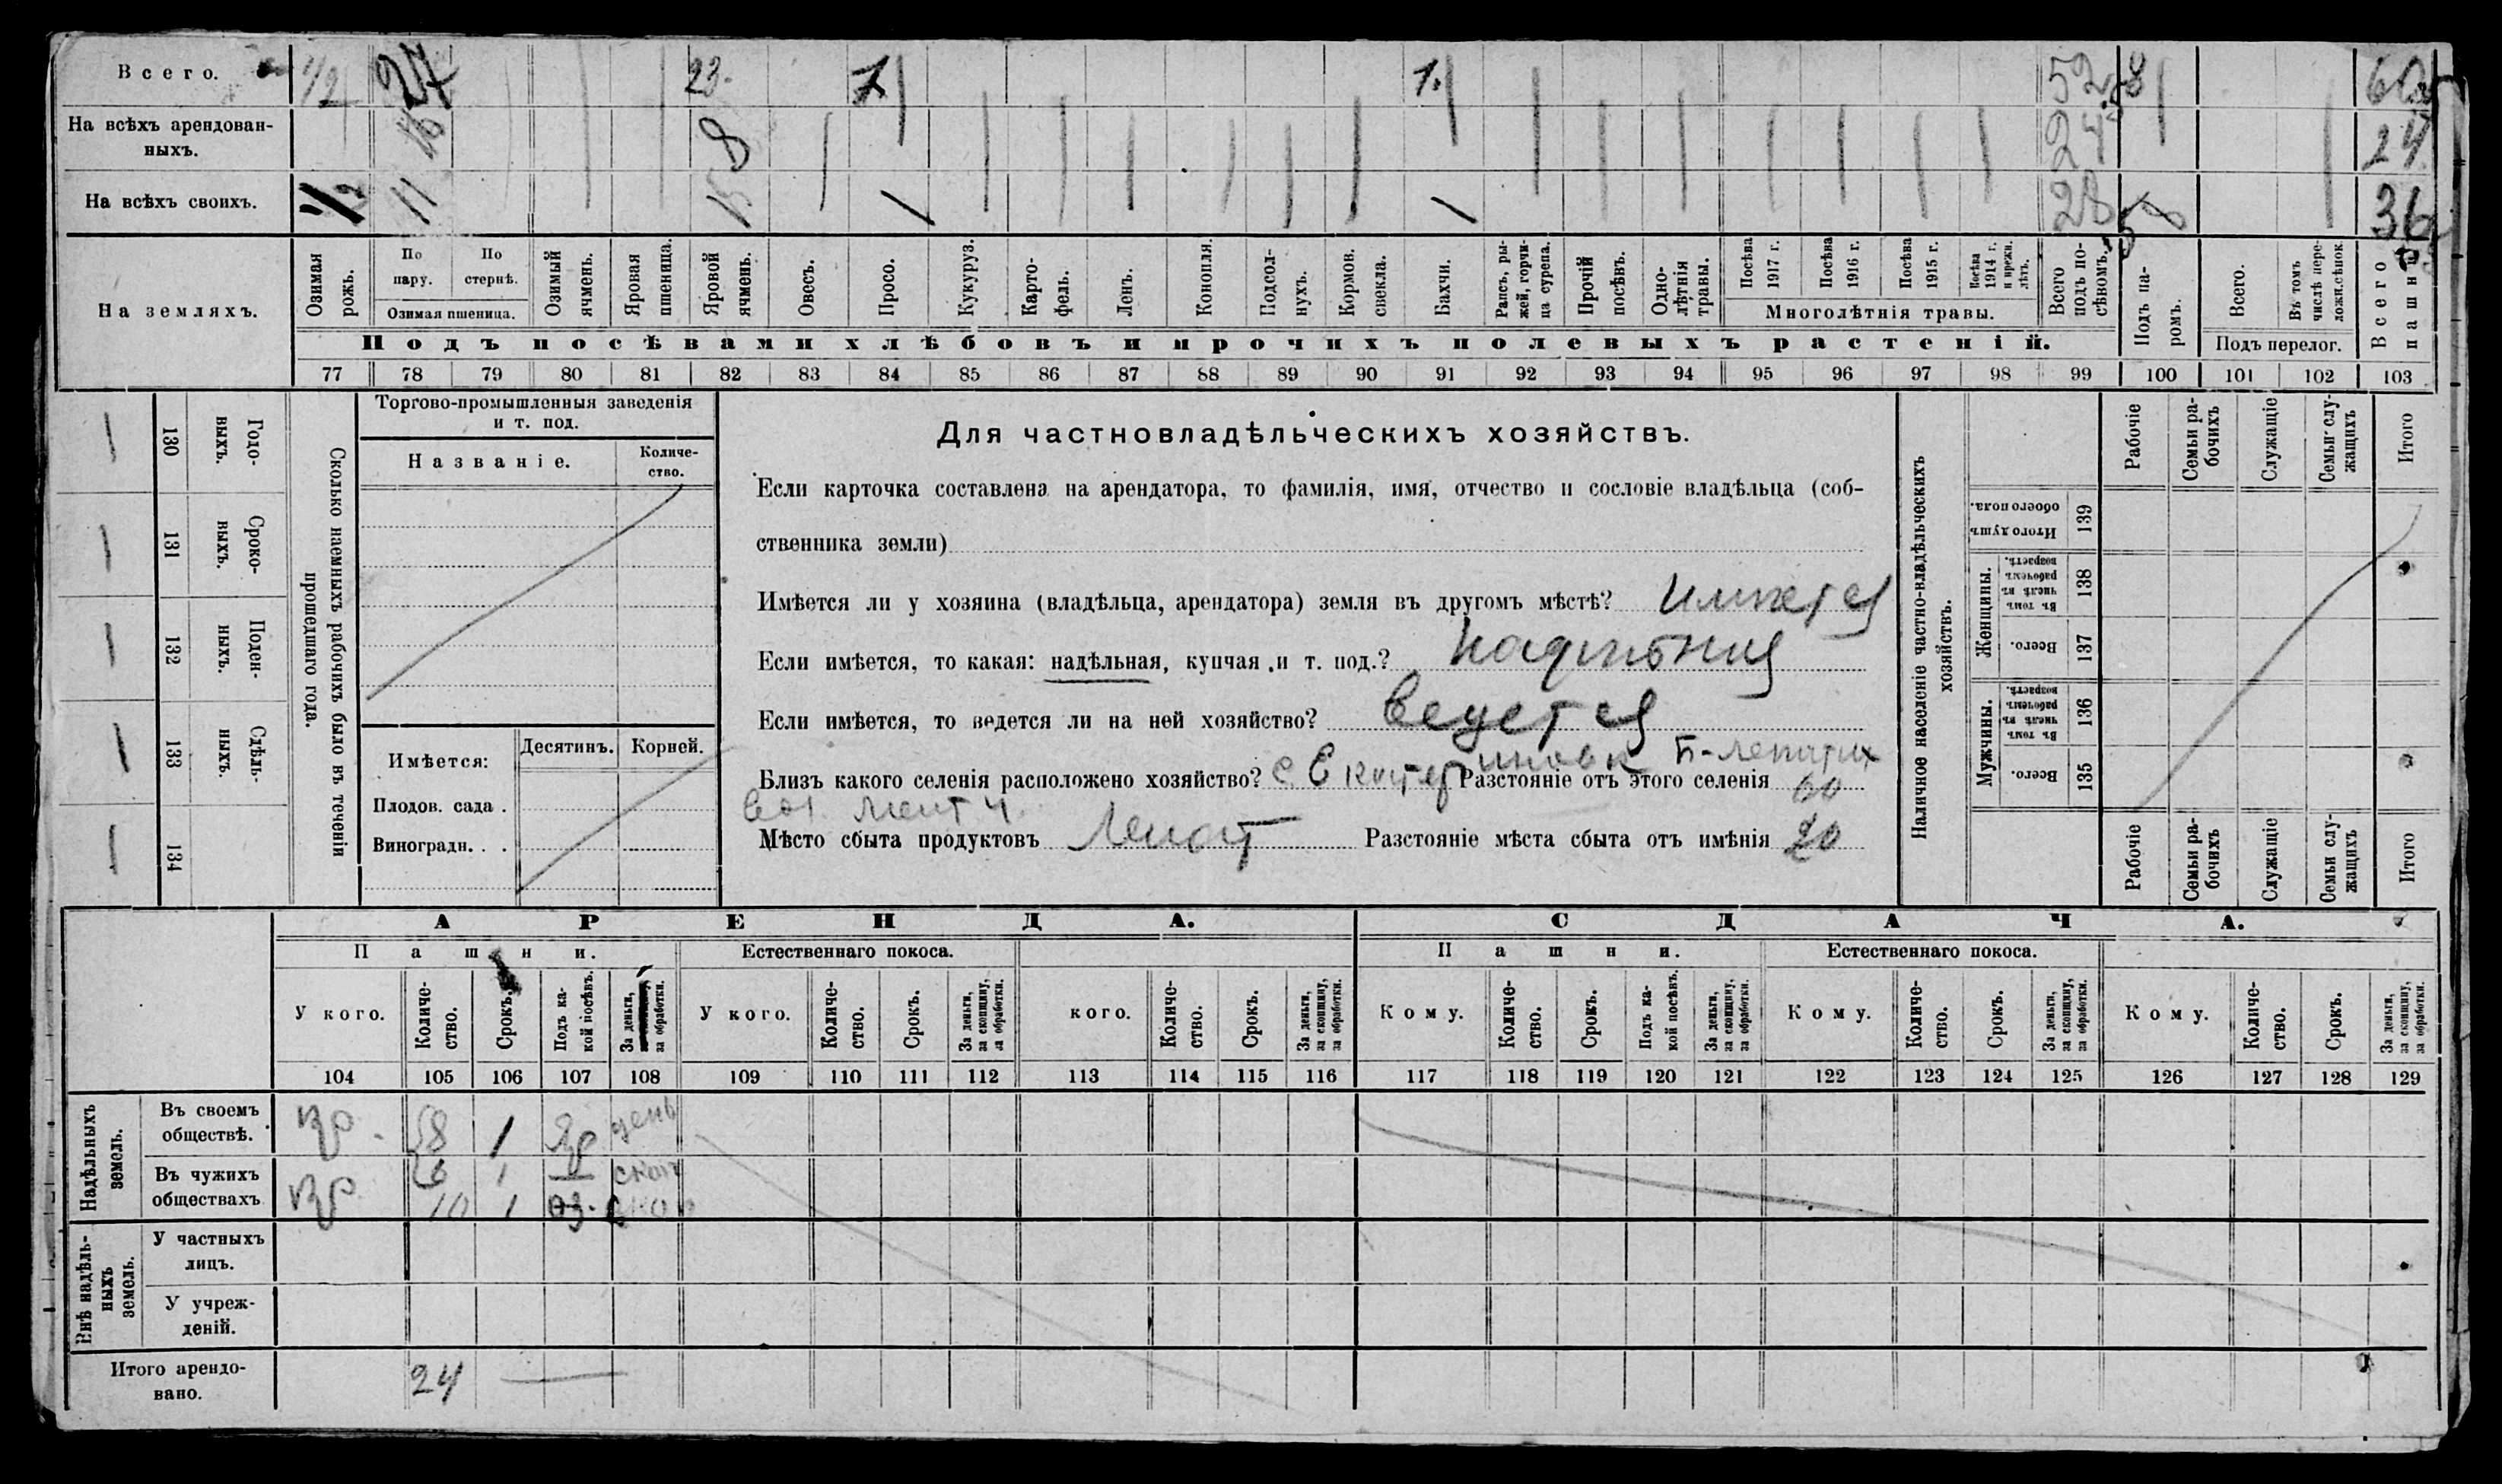 Всего. 1/2 27 23. 1 1. 52 8 60
На всѣхъ арендован-
ныхъ. 16 8 24 24
На всѣхъ своихъ. 1/2 11 15 1 1 28 8 36
На земляхъ.
Озимая рожь.
По пару.
По стернѣ.
Озимая пшеница.
Озимый ячмень.
Яровая пшеница.
Яровой ячмень.
Овесъ.
Просо.
Кукуруз.
Карто-
фель.
Ленъ.
Конопля.
Подсол-
нухъ.
Кормов. свекла.
Бахчи.
Рапсъ, ры-
жей, горчи-
ца сурепа.
Прочій посѣвъ.
Одно-
лѣтнія травы.
Посѣва 1917 г.
Посѣва 1916 г.
Посѣва 1915 г.
Посѣва 1914 г. и прежн. лѣтъ.
Многолѣтнія травы.
Всего подъ по-
сѣвомъ.
Подъ па-
ромъ.
Всего.
Въ томъ числѣ пере-
ложн. сѣнок.
Подъ перелог.
Всего пашни
Подъ посѣвами хлѣбовъ и прочихъ полевыхъ растеній.
77 78 79 80 81 82 83 84 85 86 87 88 89 90 91 92 93 94 95 96 97 98 99 100 101 102 103
Сколько наемныхъ рабочихъ было въ теченіи
прошедшаго года.
Годо-
ныхъ. 130
Сроко-
выхъ. 131
Поден-
ныхъ. 132
Сдѣль-
ныхъ. 133
134
Торгово-промышленныя заведенія
и т. под.
Названіе.
Количе-
ство.
Имѣется: Десятинъ. Корней.
Плодов. сада .
Виноградн. . .
Для частновладѣльческихъ хозяйствъ.
Если карточка составлена на арендатора, то фамилія, имя, отчество и сословіе владѣльца (соб-
ственника земли)
Имѣется ли у хозяина (владѣльца, арендатора) земля въ другомъ мѣстѣ? имѣется
Если имѣется, то какая: надѣльная, купчая и т. под.? надѣльная
Если имѣется, то ведется ли на ней хозяйство? ведется
Близъ какого селенія расположено хозяйство? с. Екатериновк Б-Лепатих Разстояніе отъ этого селенія 60
Мѣсто сбыта продуктовъ Лепат Разстояніе мѣста сбыта отъ имѣнія 20
Наличное населеніе частно-владѣльческихъ
хозяйствъ.
Рабочіе
Семьи ра-
бочихъ
Служащіе
Семьи слу-
жащихъ
Итого
Итого душъ обоего пола. 139
Женщины.
Въ томъ числѣ въ рабочемъ возрастѣ. 138
Всего. 137
Мужчины.
Въ томъ числѣ въ рабочемъ возрастѣ. 136
Всего. 135
Рабочіе
Семьи ра-
бочихъ
Служащіе
Семьи слу-
жащихъ
Итого
АРЕНДА. СДАЧА.
Пашни. Естественнаго покоса. Пашни. Естественнаго покоса.
У кого.
Количе-
ство.
Срокъ.
Подъ ка-
кой посѣвъ.
За деньги,
за обработки.
У кого.
Количе-
ство.
Срокъ.
За деньги,
за скопщину,
за обработки.
кого.
Количе-
ство.
Срокъ.
За деньги,
за скопщину,
за обработки.
Кому.
Количе-
ство.
Срокъ.
Подъ ка-
кой посѣвъ.
За деньги,
за скопщину,
за обработки.
Кому.
Количе-
ство.
Срокъ.
За деньги,
за скопщину,
за обработки.
Кому.
Количе-
ство.
Срокъ.
За деньги,
за скопщину,
за обработки.
104 105 106 107 108 109 110 111 112 113 114 115 116 117 118 119 120 121 122 123 124 125 126 127 128 129
Надѣльныхъ
земель.
Въ своемъ
обществѣ. 8 1 Яр день
Въ чужихъ
обществахъ 6 1 скоп
10 1 оз. скоп
Внѣ надѣль-
ныхъ
земель.
У частныхъ
лицъ.
У учреж-
деній.
Итого арендо-
вано. 24